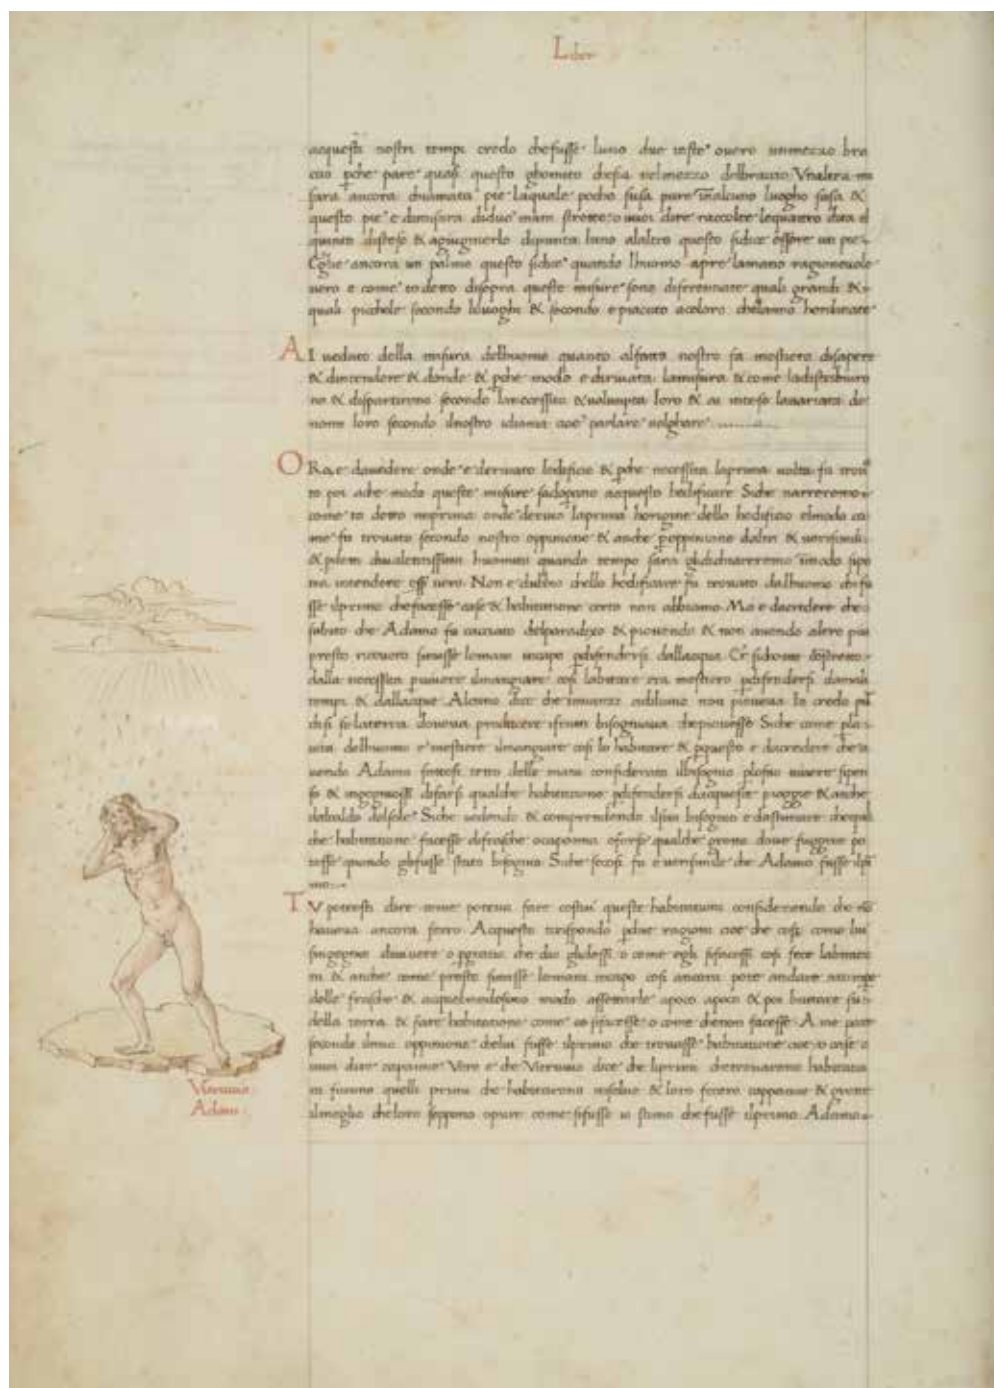 Liber
acquesti nostri tempi credo che fusse luno due teste overo unmezzo bra
cio pche pare quasi questo ghomito chesia nelmezzo delbraccio Unaltra mi
sura ancora chiamata pie laquale pocho susa pure inalcuno luogho susa &
questo pie e dimisura didue mani strette o vuoi dire raccolte lequattro dita el
quinto disteso & agiugnerlo dipunta luno alaltro questo sidice essere un pie
Eglie ancora un palmo questo sidice quando lhuomo apre lamano ragionevole
vero e come to detto disopra queste misure sono diferentiate quali grandi &
quali picchole secondo iluoghi & secondo e piaciuto acoloro chelanno hordinate
AI veduto della misura delhuomo quanto alfatto nostro fa mestiero disapere
& dintendere & donde & pche modo e dirivata lamisura & come ladistribuiro
no & dispartirono secondo lanecessita & volumpta loro & ai inteso lavarieta de
nomi loro secondo ilnostro idioma cioe parlare volghare
ORa e davedere onde e derivato lodeficio & pche necessita laprima volta fu trova
to poi ache modo queste misure sadoperano acquesto hedificare Siche narreremo
come to detto imprima onde derivo laprima horigine dello hedificio elmodo co
me fu trovato secondo nostro oppinione & anche poppinione daltri & verisimili
& prima divalentissimi huomini quando tempo sara glidichiareremo imodo sipo
tra intendere esser vero. Non e dubbio chello hedificare fu trovato dalhuomo chi fu
sse ilprimo che facesse case & habitatione certo non abbiamo. Ma e dacredere che
subito che Adamo fu cacciato delparadiso & piovendo & non avendo altro piu
presto ricovero simisse lemani incapo pdifendersi dallacqua
dalla necessita pvivere ilmangiare cosi labitare era mestiero pdifendersi damali
tempi & dallacque Alcuno dice che innanzi aldiluvio non pioveva Io credo piu
disi se laterra doveva producere ifrutti bisognava chepiovesse Siche come pla
vita delhuomo e mestiere ilmangiare cosi lo habitare & pquesto e dacredere che a
vendo Adamo fattosi tetto delle mani considerato ilbisogno plosuo vivere sipen
so & ingegnossi difarsi qualche habitatione pdifendersi daqueste pioggie & anche
dalcaldo delsole Siche vedendo & comprendendo ilsuo bisogno e dastimare chequal
che habitatione facesse difrasche ocapanna oforse qualche grotta dove fuggire po
tesse quando glifusse stato bisogno Siche secosi fu e verisimile che Adamo fusse ilpri
mo
TU potresti dire come poteva fare costui queste habitationi considerando che no
haveva ancora ferro Acquesto tirispondo pdue ragioni cioe che cosi come lui
singegno divivere o pgratia che dio glidessi o come egli sifacessi cosi fece labitatio
ni & anche come presto simisse lemani incapo cosi ancora pote andare arompere
delle frasche & acquelmedesimo modo assettarle apoco apoco & poi buttare su
della terra & fare habitatione come cio sifacesse o come chenon facesse A me pare
secondo ilmio oppinione chelui fusse ilprimo che trovasse habitatione cioe o case o
vuoi dire capanne Vero e che Vitruvio dice che liprimi chetrovarono habitatio
ni furono quelli primi che habitarono inselve & loro fecero cappanne & grotte
ilmeglio che loro seppono opare come sifusse io stimo che fusse ilprimo Adamo
Vitruvio
Adam